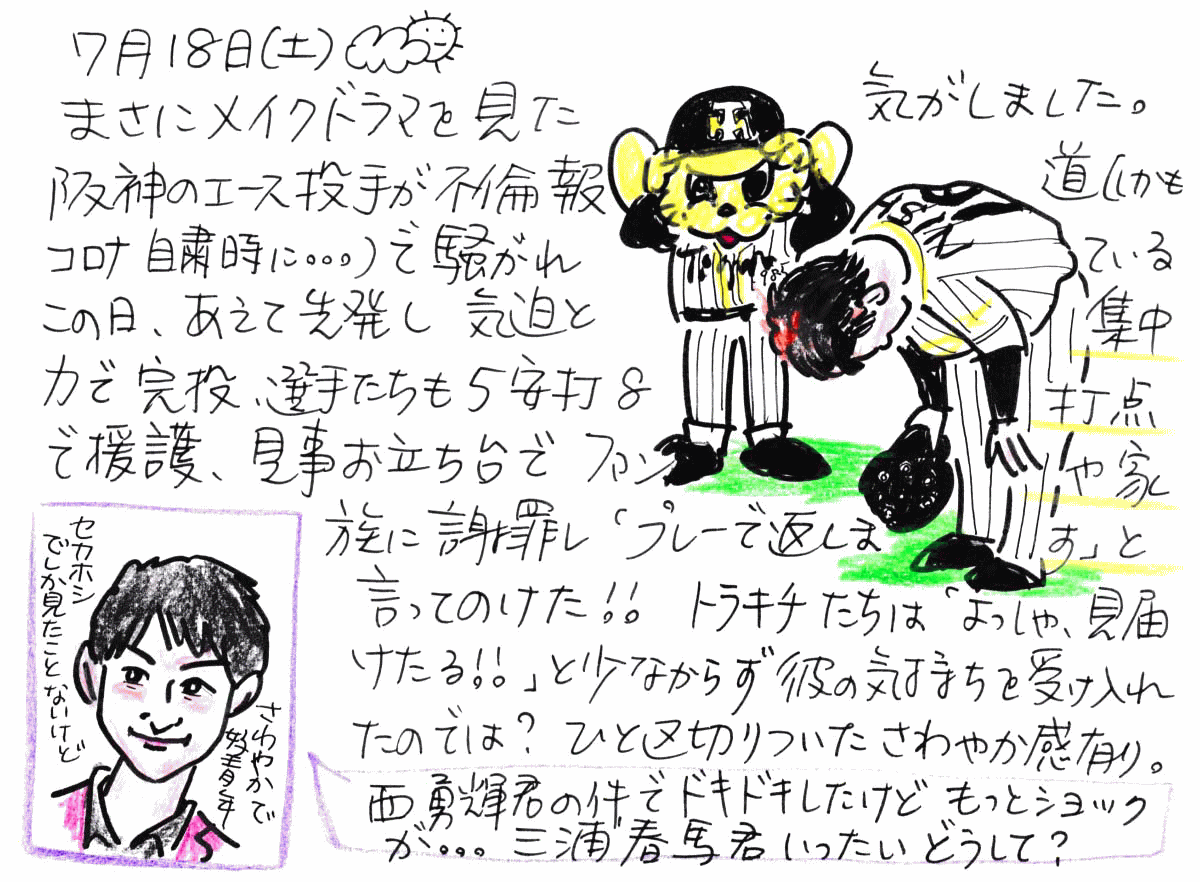 7月18日(土)
まさにメイクドラマを見た 気がしました。
阪神のエース投手が不倫報道(しかも
コロナ自粛時に...)で騒がれている
この日、あえて先発し 気迫と集中
力で完投、選手たちも5安打8打点
で援護、見事お立ち台でファンや家
族に謝罪し「プレーで返します」と
言ってのけた!! トラキチたちは「よっしゃ、見届
けたる!!」と少なからず彼の気持ちを受け入れ
たのでは?ひと区切りついたさわやか感有り。
西勇輝君の件でドキドキしたけど もっとショック
が...三浦春馬君いったいどうして?
セカホシ
でしか見たことないけど
さわやかで
好青年
H